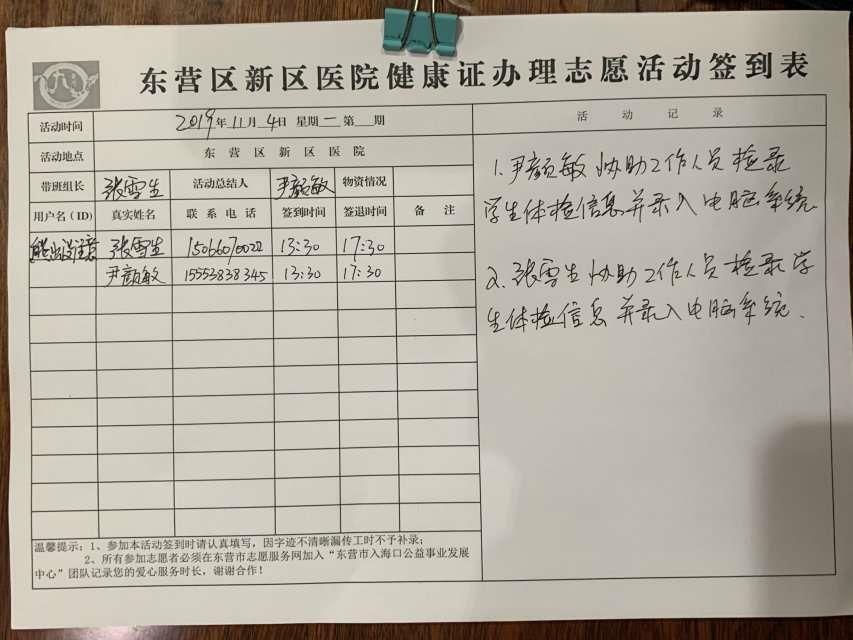 东营区新区医院健康证办理志愿活动签到表
活动时间 2019年11月4日 星期二 第 期
活动地点 东营区新区医院
带班组长 张雪生 活动总结人 尹颜敏 物资情况
用户名（ID） 真实姓名 联系电话 签到时间 签退时间 备注
熊出没注意 张雪生 15066070022 13:30 17:30
尹颜敏 15553838345 13:30 17:30
温馨提示：1、参加本活动签到时请认真填写，因字迹不清晰漏传工时不予补录；
2、所有参加志愿者必须在东营市志愿服务网加入“东营市入海口公益事业发展
中心”团队记录您的爱心服务时长，谢谢合作！
活动记录
1.尹颜敏协助工作人员检录
学生体检信息并录入电脑系统.
2.张雪生协助工作人员检录学
生体检信息并录入电脑系统.